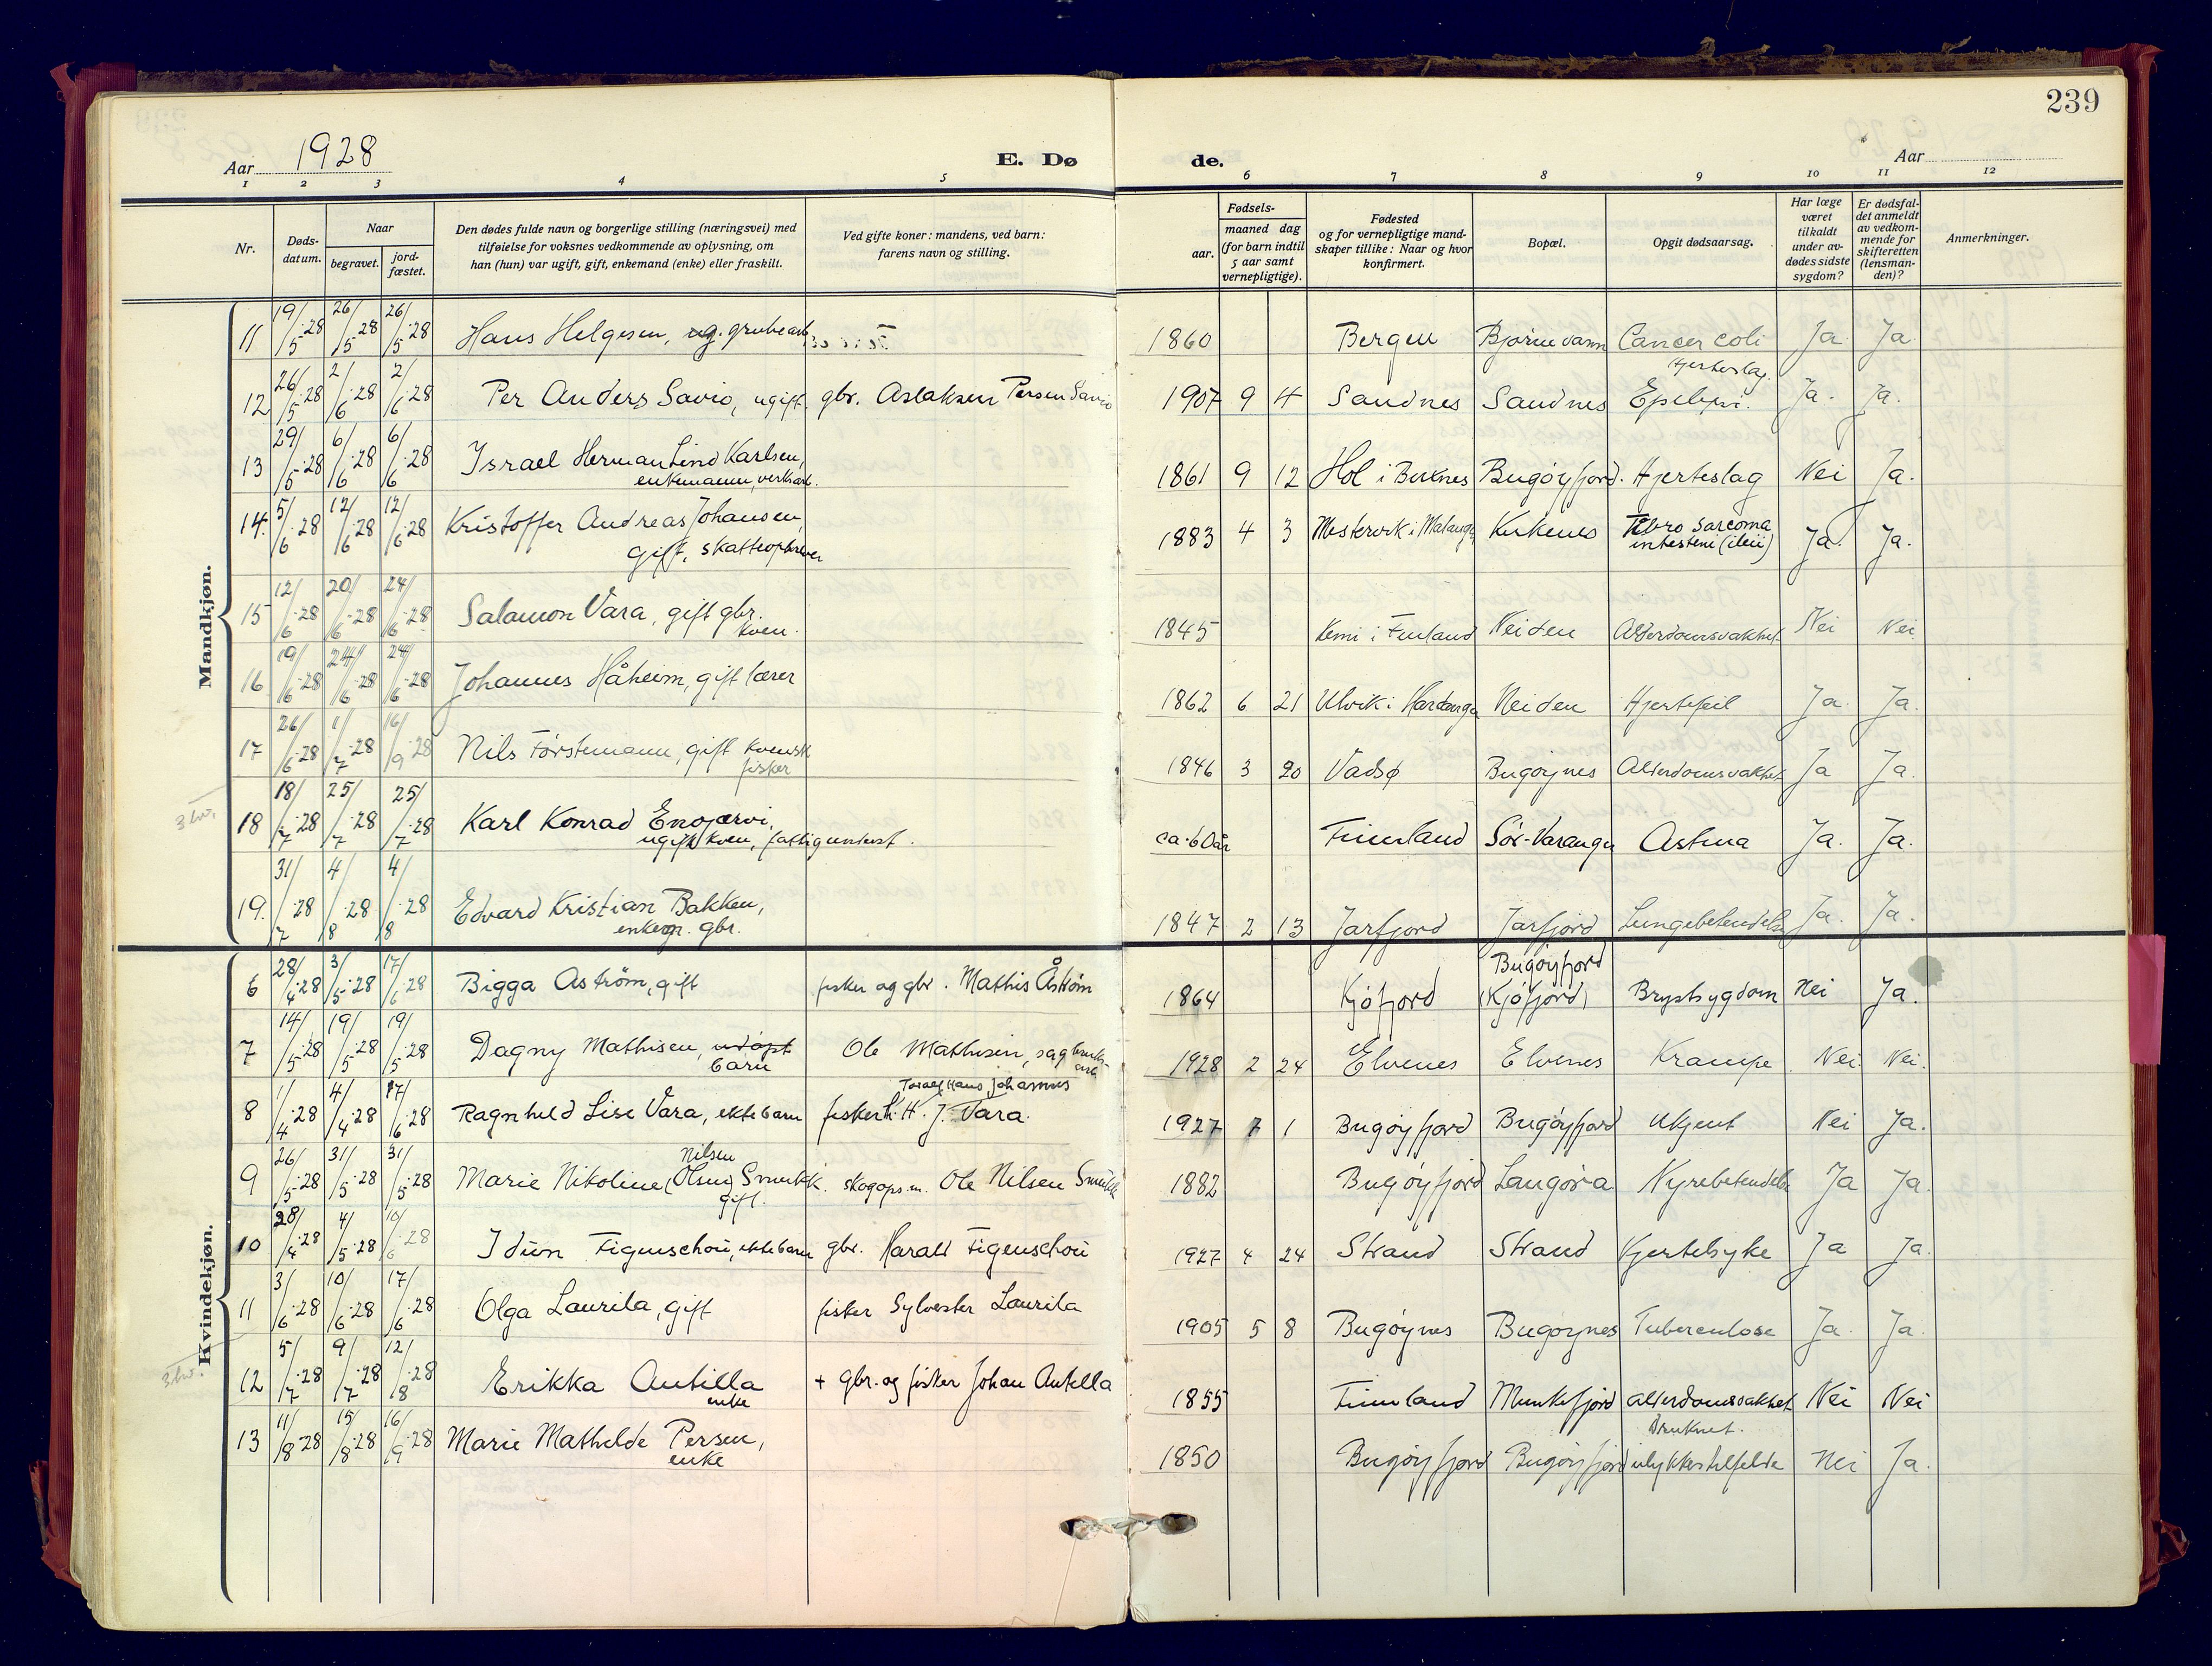 239
Aar 1928
E. Dø de.
Aar
1 2 3 4 5 6 7 8 9 10 11 12
Nr.
Døds-datum.
Naar
begravet.
jord-fæstet.
Den dødes fulde navn og borgerlige stilling (næringsvei) med
tilføielse for voksnes vedkommende av oplysning, om
han (hun) var ugift, gift, enkemand (enke) eller fraskilt.
Ved gifte koner: mandens, ved barn:
farens navn og stilling.
Fødsels-
aar.
maaned dag
(for barn indtil
5 aar samt
vernepligtige).
Fødested
og for vernepligtige mand-
skaper tillike: Naar og hvor
konfirmert.
Bopæl.
Opgit dødsaarsag.
Har læge
været
tilkaldt
under av-
dødes sidste
sygdom?
Er dødsfal-
det anmeldt
av vedkom-
mende for
skifteretten
(lensman-
den)?
Anmerkninger.
Mandkjøn.
11 19/5-28 26/5-28 26/5-28 Hans Helgesen, ug. grubearb. 1860 Bergen Bjørnevann Cancer coli Ja Ja
12 26/5-28 2/6-28 2/6-28 Per Anders Savio, ugift. gbr. Aslaksen Persen Savio 1907 9 4 Sandnes Sandnes Hjerteslag Epilepsi. Ja. Ja.
13 29/5-28 6/6-28 6/6-28 Israel Herman Lind Karlsen,
enkemann, verksarb. 1861 9 12 Hol i Buknes Bugøyfjord. Hjerteslag Nei Ja.
14. 5/6-28 12/6-28 12/6-28 Kristoffer Andreas Johansen,
gift, skatteopkrever 1883 4 3 Mestervik i Malangen Kirkenes Fibro sarcoma
intesteni (ileii) Ja. Ja.
15 12/6-28 20/6-28 24/6-28 Salamon Vara, gift gbr.
kven. 1845 Kemi i Finland Neiden Alderdomsvakhet Nei Nei
16 19/6-28 24/6-28 24/6-28 Johannes Håheim, gift lærer 1862 6 21 Ulvik i Hardanger Neiden Hjertefeil Ja. Ja.
17 26/6-28 1/7-28 16/9-28 Nils Førstemann, gift kvensk
fisker 1846 3 20 Vadsø Bugøynes Alderdomsvakhet Ja Ja.
18 18/7-28 25/7-28 25/7-28 Karl Konrad Enojærvi,
ugift kven, fattigunderst. ca. 60 år Finnland Sør-Varanger Astma Ja. Ja.
19. 31/7-28 4/8-28 4/8-28 Edvard Kristian Bakken,
enkem. gbr. 1847 2 13 Jarfjord Jarfjord Lungebetendelse Ja. Ja.
Kvindekjøn.
6 28/4-28 3/5-28 17/6-28 Bigga Astrøm, gift fisker og gbr. Mathis Åstrøm 1864 Kjøfjord Bugøyfjord
(Kjøfjord) Brystsygdom Nei Ja.
7 14/5-28 19/5-28 19/5-28 Dagny Mathisen, udøpt
barn Ole Mathisen, sagbruks-
arb. 1928 2 24 Elvenes Elvenes Krampe Nei Nei.
8 1/4-28 4/4-28 17/6-28 Ragnhild Lise Vara, ektebarn Toralf Hans Johannes
fisker T. H. J. Vara. 1927 7 1 Bugøyfjord Bugøyfjord Ukjent Nei Ja.
9 26/5-28 31/5-28 31/5-28 Nilsen
Marie Nikoline (Olsen) Smukk.
gift. skogops.m. Ole Nilsen Smukk 1882 Bugøyfjord Langøra Nyrebetendelse Ja Ja.
10 28/4-28 4/5-28 10/6-28 Idun Figenschou, ektebarn gbr. Harald Figenschou 1927 4 24 Strand Strand Kjertelsyke Ja Ja.
11 3/6-28 10/6-28 17/6-28 Olga Laurila, gift fisker Sylvester Laurila 1905 5 8 Bugøynes Bugøynes Tuberculose Ja. Ja.
12 5/7-28 9/7-28 12/8-28 Erikka Antilla
enke + gbr. og fisker Johan Antilla 1855 Finnland Munkefjord Alderdomsvakhet Nei Nei
13 11/8-28 15/8-28 16/9-28 Marie Mathilde Persen,
enke 1850 Bugøyfjord Bugøyfjord Druknet.
ulykkestilfelde Nei Ja.